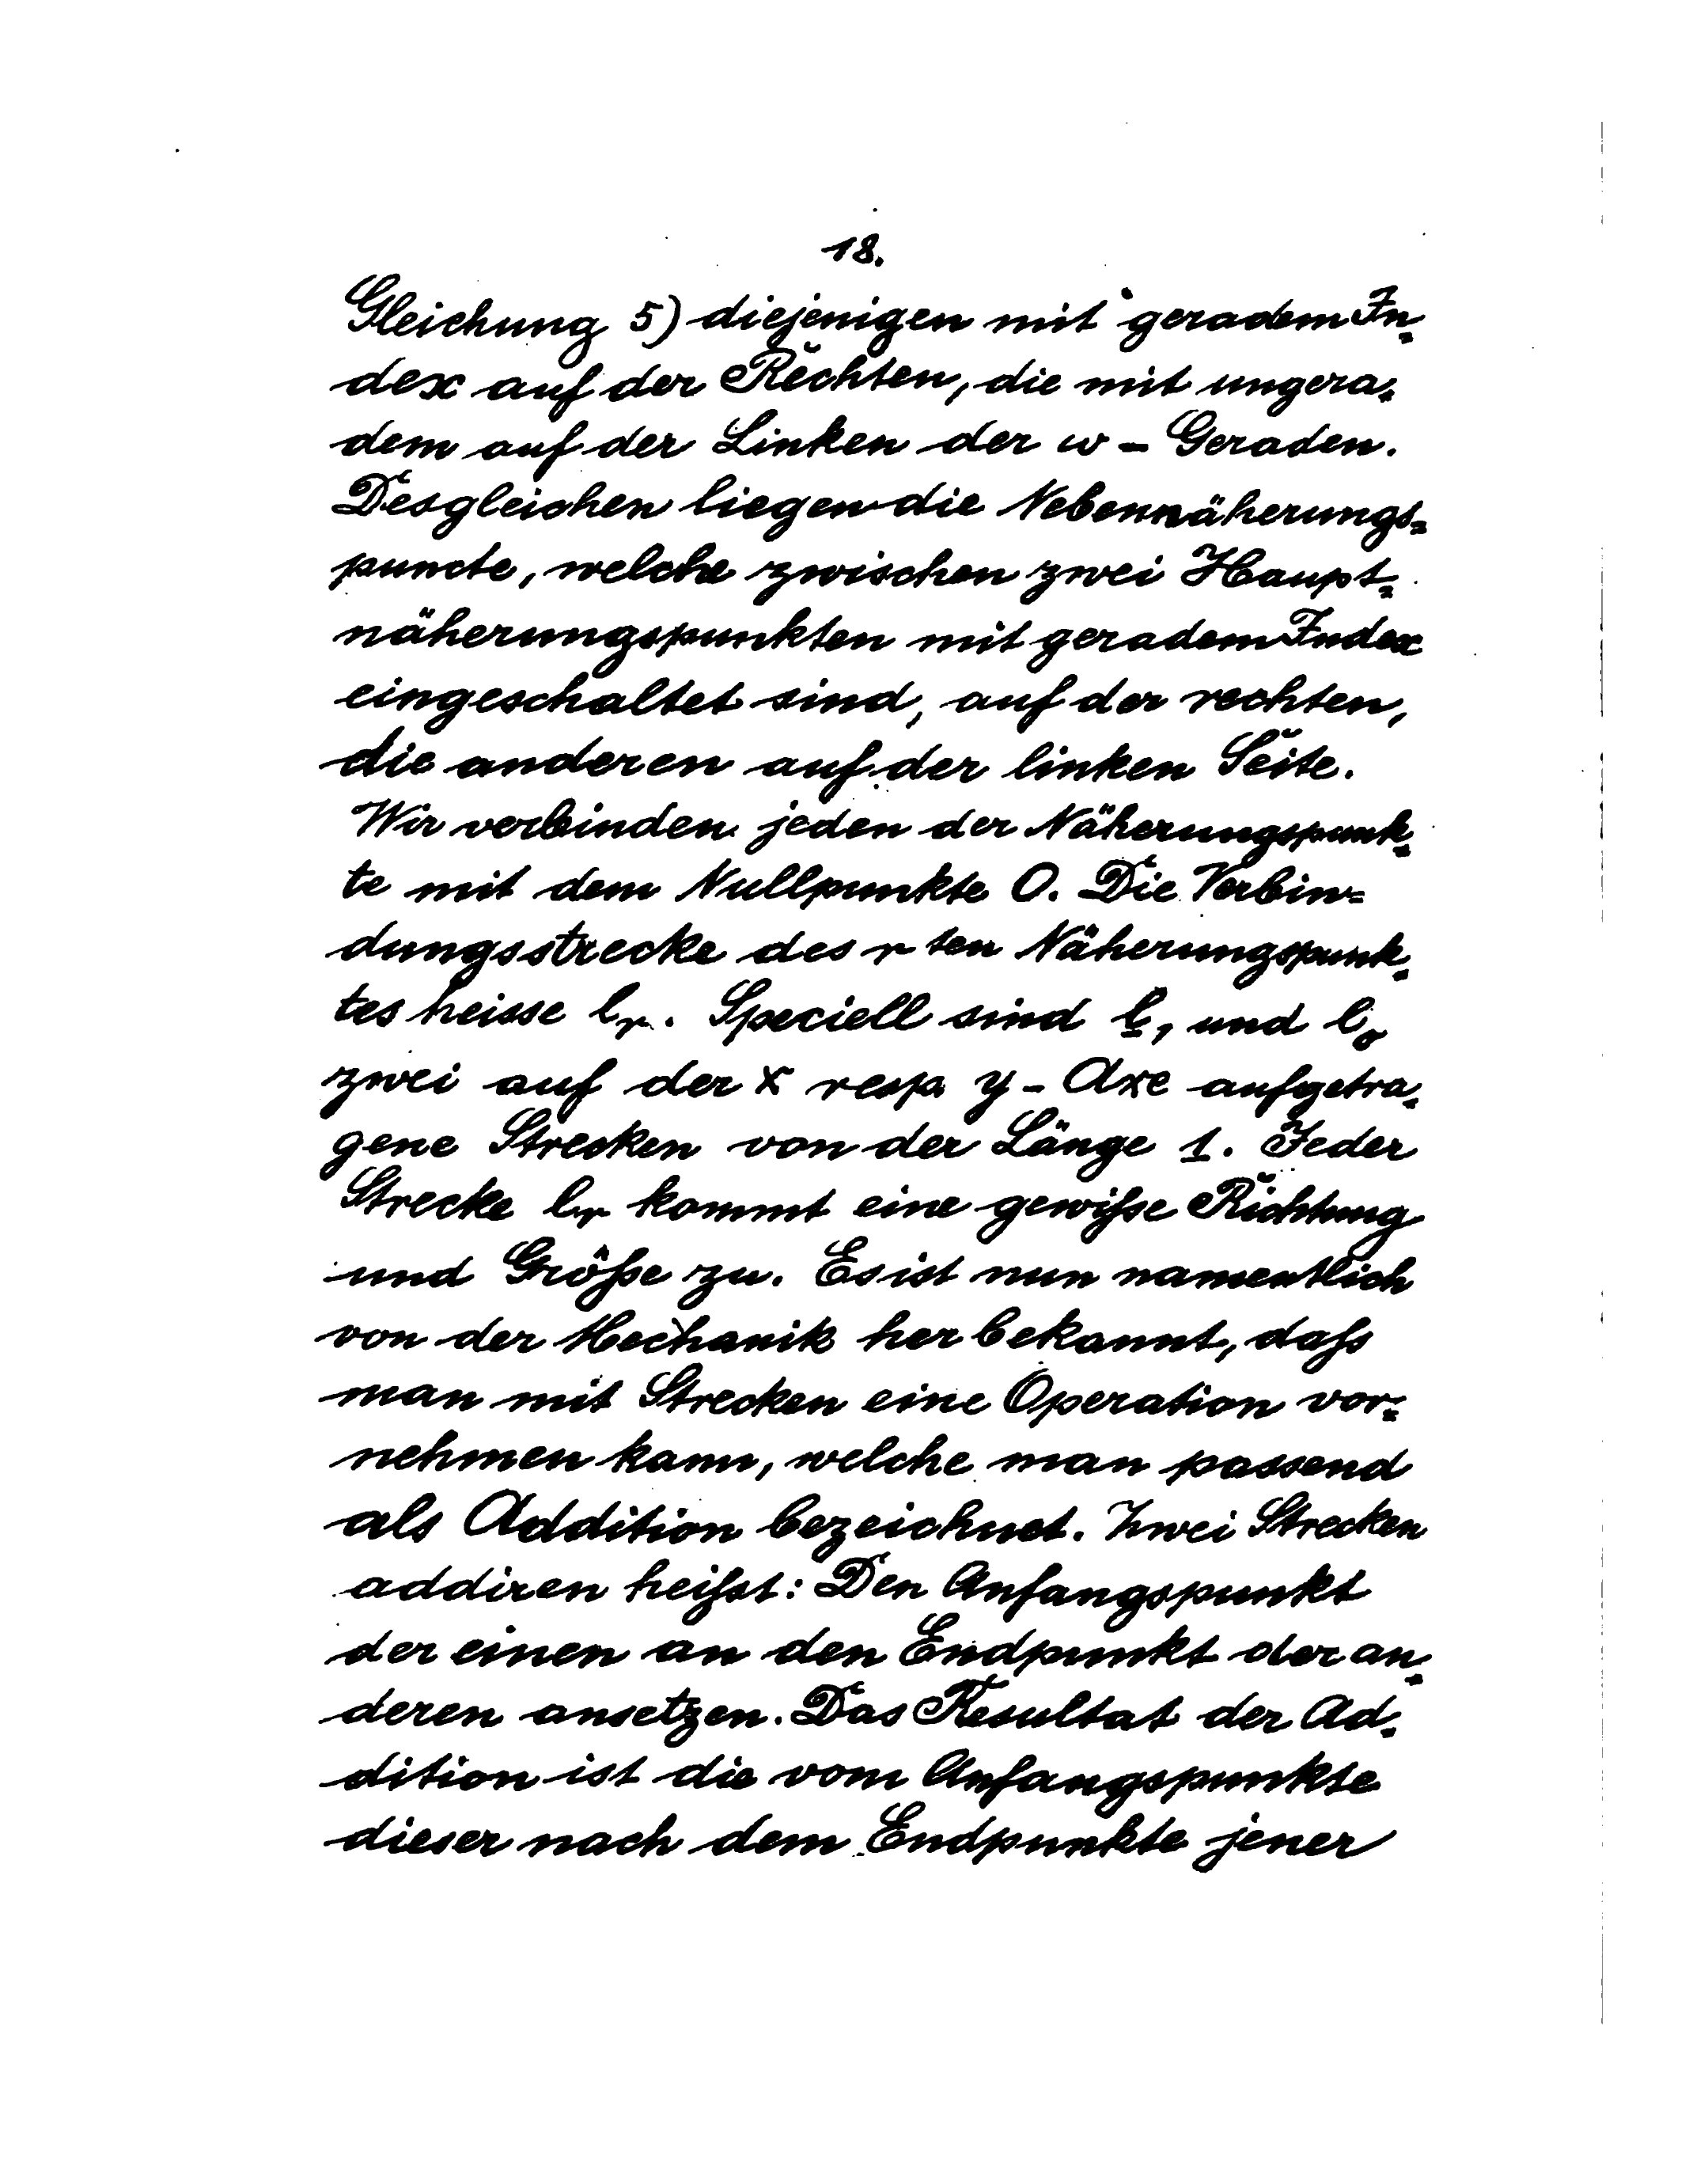 18.
Gleichung 5) diejenigen mit geradem In=
dex auf der Rechten, die mit ungera=
dem auf der Linken der w - Geraden.
Desgleichen liegen die Nebennäherungs=
puncte, welche zwischen zwei Haupt=
näherungspunkten mit geradem Index
eingeschaltet sind, auf der rechten,
die anderen auf der linken Seite.
Wir verbinden jeden der Näherungspunk=
te mit dem Nullpunkte O. Die Verbin=
dungsstrecke des r ten Näherungspunk=
tes heisse lᵣ. Speciell sind l₋₁ und l₀
zwei auf der x resp y - Axe aufgetra=
gene Strecken von der Länge 1. Jeder
Strecke lᵣ kommt eine gewisse Richtung
und Größe zu. Es ist nun namentlich
von der Mechanik her bekannt, dass
man mit Strecken eine Operation vor=
nehmen kann, welche man passend
als Addition bezeichnet. Zwei Strecken
addiren heisst: Den Anfangspunkt
der einen an den Endpunkt der an=
deren ansetzen. Das Resultat der Ad=
dition ist die vom Anfangspunkte
dieser nach dem Endpunkte jener